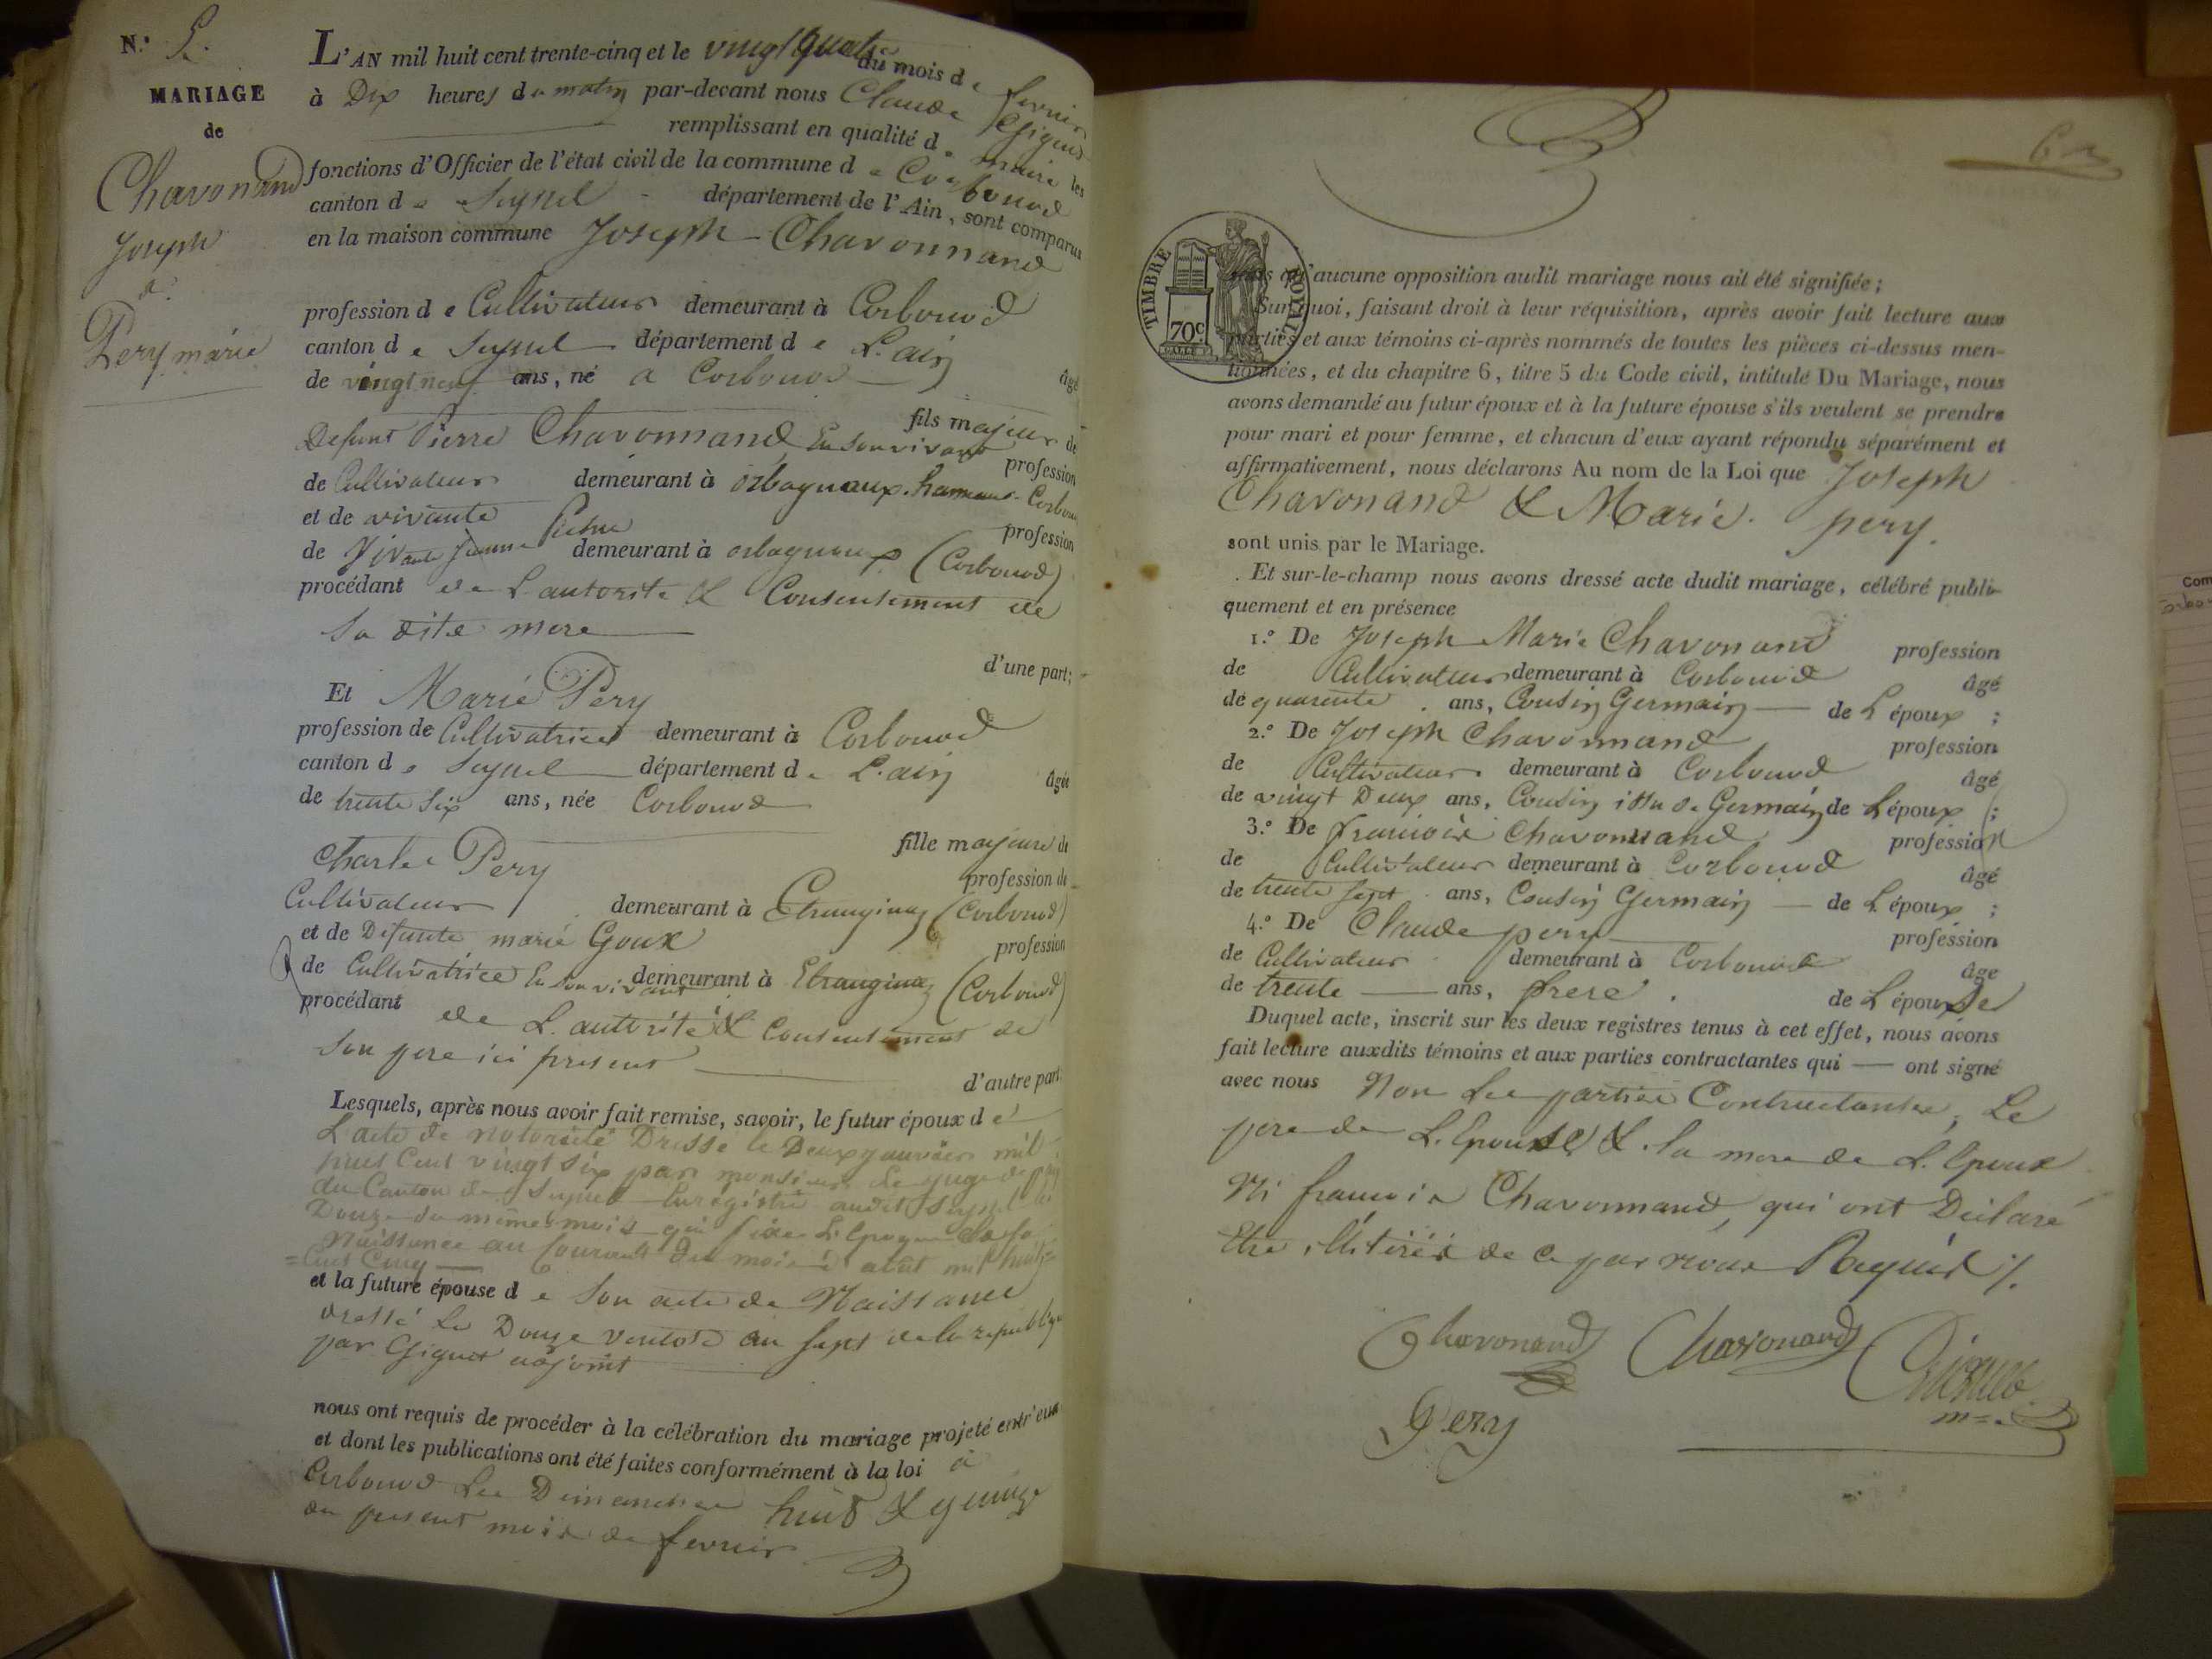 N.° 5.
MARIAGE
de
Chavonand
Joseph
&
Pery marie
L'AN mil huit cent trente-cinq et le vingt quatre du mois de fevrier
à Dix heures du matin par-devant nous Claude Giguet
remplissant en qualité de maire les
fonctions d'Officier de l'état civil de la commune de Corbonod
canton de Seyssel département de l'Ain, sont comparus
en la maison commune Joseph Chavonnand
profession de Cultivateur demeurant à Corbonod
canton de Seyssel département de L'ain âgé
de vingt neuf ans, né a Corbonod
fils majeur de
Defunt Pierre Chavonnand En son vivant profession
de Cultivateur demeurant à orbagnoux hameau Corbonod
et de vivante profession
de Vivante Jeanne demeurant à orbagnoux (Corbonod)
procédant de L'autorité & Consentement de
Sa dite mere
d'une part;
Et Marie Pery
profession de Cultivatrice demeurant à Corbonod
canton de Seyssel département de L'ain âgée
de trente Six ans, née Corbonod
fille majeure de
Charles Pery profession de
Cultivateur demeurant à Etranginaz (Corbonod)
et de Defunte marie Goux profession
de Cultivatrice En son vivant demeurant à Etranginaz (Corbonod)
procédant de L'autorité & Consentement de
Son pere ici present
d'autre part.
Lesquels, après nous avoir fait remise, savoir, le futur époux de
L'acte de notoriété Dressé le Deux janvier mil
huit Cent vingt six par monsieur Le juge de paix
du Canton de Seyssel Enregistré audit Seyssel le
Douze du même mois qui fixe L'Epoque de Sa
Naissance au Courant du mois d'août mil huit
=Cent Cinq
et la future épouse de Son acte de Naissance
dressé Le Douze ventose an Sept de la republique
par Giguet adjoint
nous ont requis de procéder à la célébration du mariage projeté entr'eux
et dont les publications ont été faites conformément à la loi à
Corbonod Les Dimanches huit & quinze
du present mois de fevrier
6
TIMBRE ROYAL
70c
sans qu'aucune opposition audit mariage nous ait été signifiée;
Sur quoi, faisant droit à leur réquisition, après avoir fait lecture aux
parties et aux témoins ci-après nommés de toutes les pièces ci-dessus men-
tionnées, et du chapitre 6, titre 5 du Code civil, intitulé Du Mariage, nous
avons demandé au futur époux et à la future épouse s'ils veulent se prendre
pour mari et pour femme, et chacun d'eux ayant répondu séparément et
affirmativement, nous déclarons Au nom de la Loi que Joseph
Chavonand & Marie pery.
sont unis par le Mariage.
Et sur-le-champ nous avons dressé acte dudit mariage, célébré publi-
quement et en présence
1.° De Joseph Marie Chavonand profession
de Cultivateur demeurant à Corbonod âgé
de quarente ans, Cousin Germain de L'époux ;
2.° De Joseph Chavonnand profession
de Cultivateur demeurant à Corbonod âgé
de vingt Deux ans, Cousin issu de Germain de L'époux ;
3.° De francois Chavonnand profession
de Cultivateur demeurant à Corbonod âgé
de trente Sept ans, Cousin Germain de L'époux ;
4.° De Claude pery profession
de Cultivateur demeurant à Corbonod âge
de trente ans, frere de L'épouse
Duquel acte, inscrit sur les deux registres tenus à cet effet, nous avons
fait lecture auxdits témoins et aux parties contractantes qui ont signé
avec nous Non Les parties Contractantes, Le
pere de L'Epouse & la mere de L'Epoux
Ni francois Chavonnand, qui ont Déclaré
Etre illitérés de ce par nous Requis /.
Chavonand Chavonand Giguet
Pery